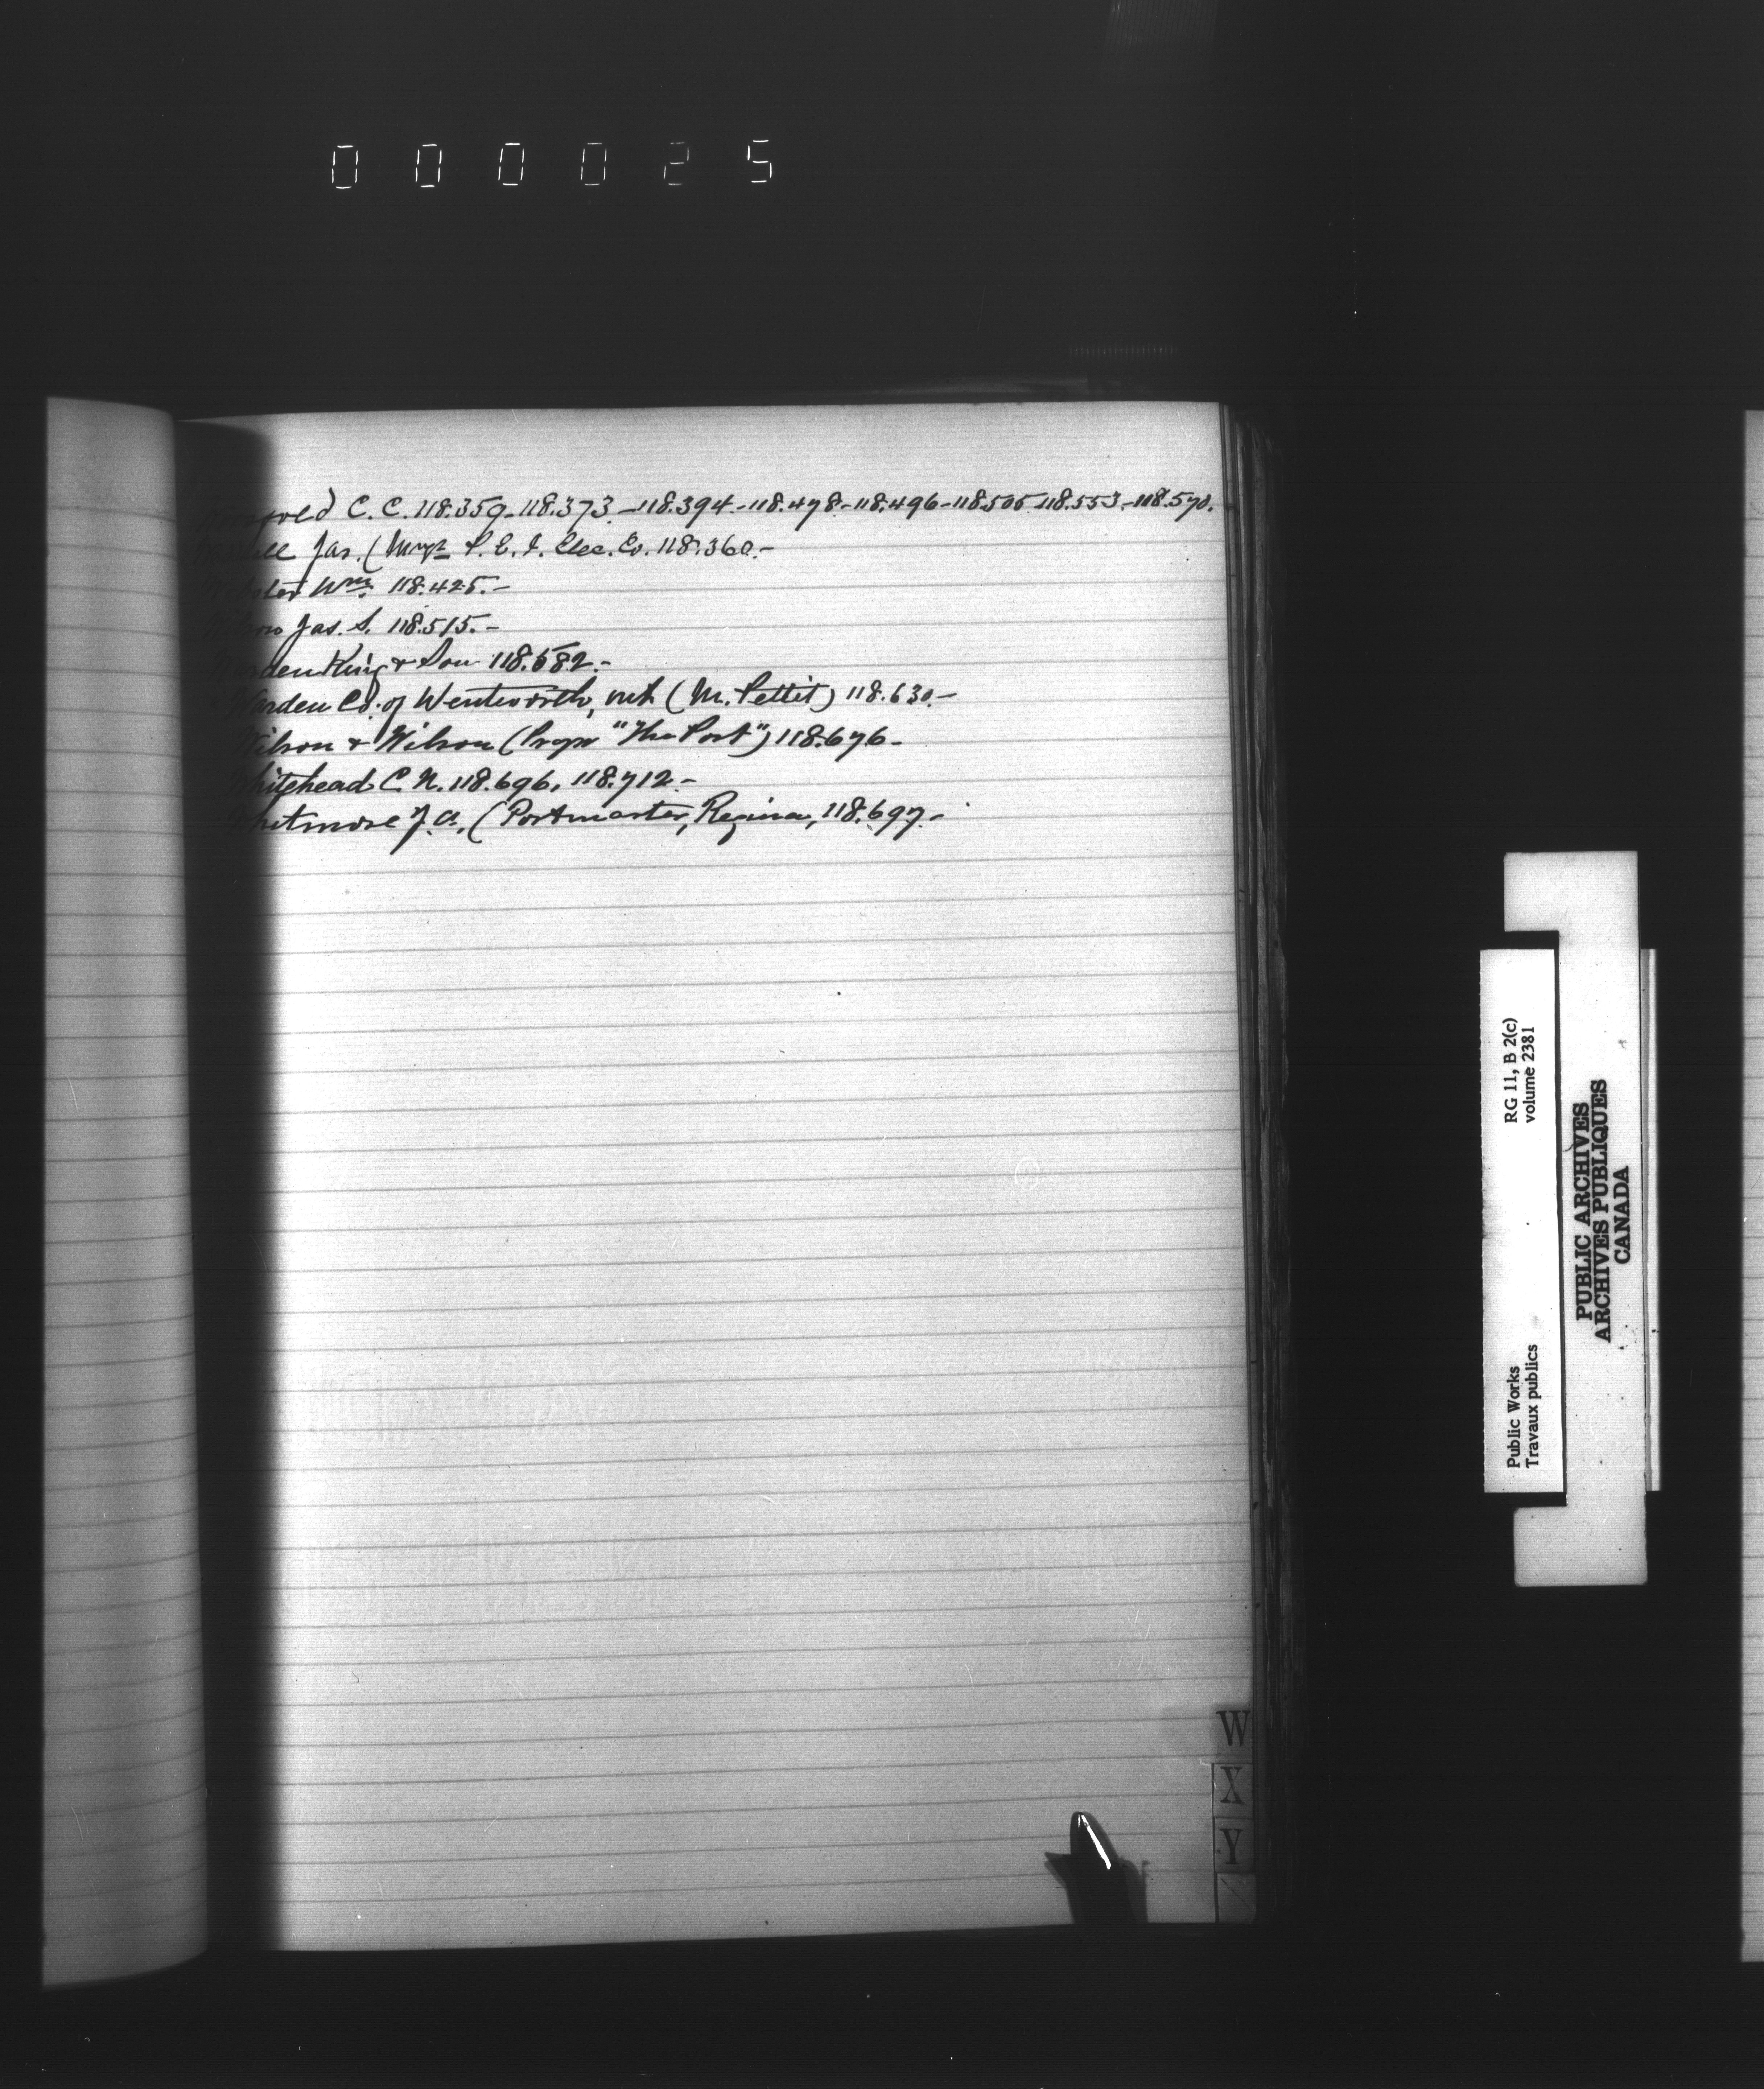 000025
C. C. 118.359-118.373-118.394-118.478-118.496-118.505-118.553-118.570.
Jas. (Mngr P. E. I. Elec. Co. 118.360.-
Webster Wm. 118.425.-
Wilson Jas. S. 118.515.-
Warden King & Son 118.582.-
Warden Co. of Wentworth, (M. Pettit) 118.630.-
Wilson & Wilson (Propr "The Post") 118.676-
Whitehead C. N. 118.696, 118.712-
Whitmore J. A. (Postmaster, Regina, 118.697.-
W
X
Y
RG 11, B 2(c)
volume 2381
Public Works
Travaux publics
PUBLIC ARCHIVES
ARCHIVES PUBLIQUES
CANADA